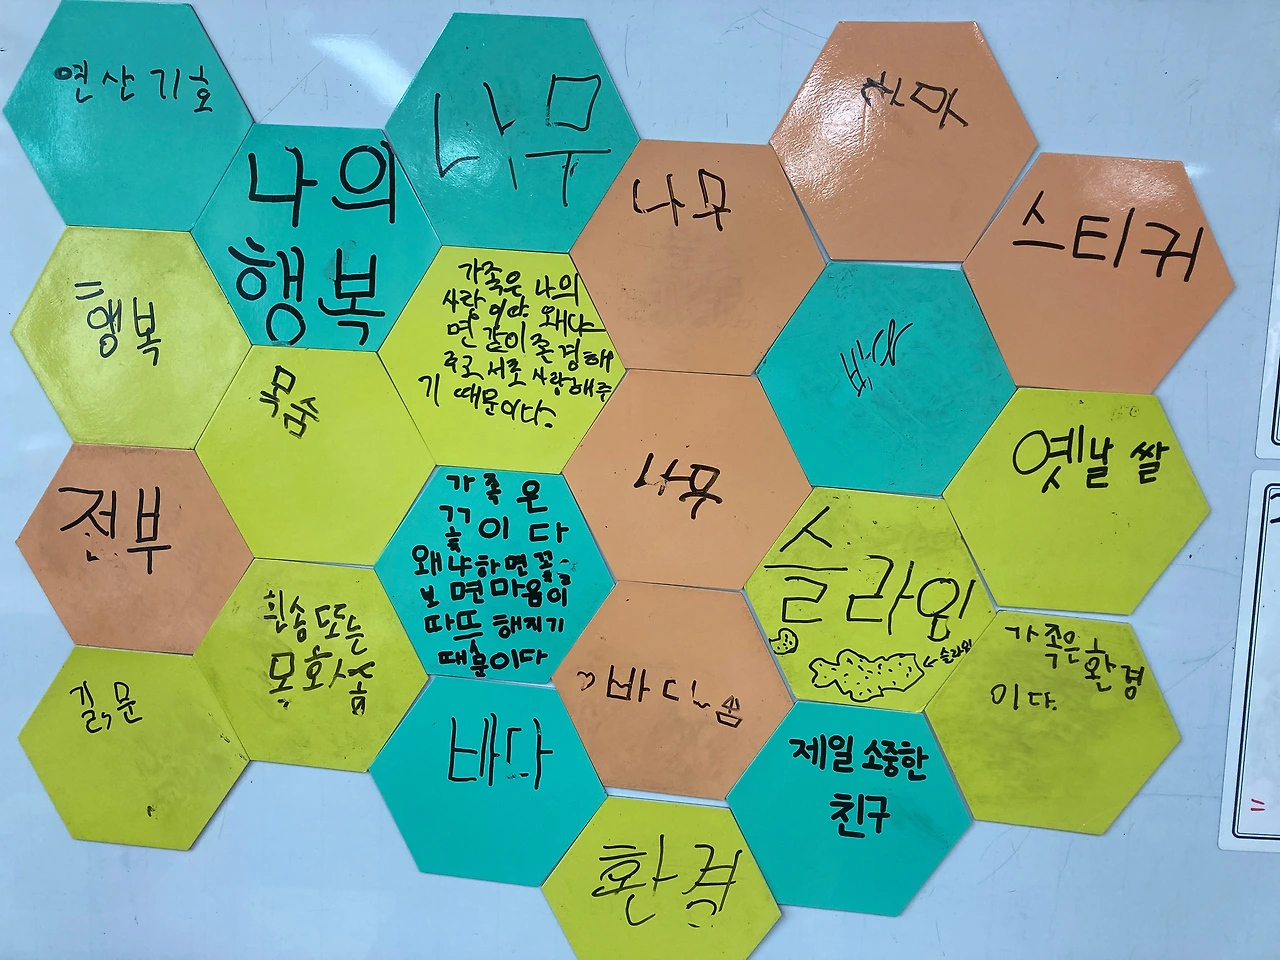 연산기호
나의
행복
나무
나무
스티커
행복
목숨
가족은 나의
사랑이야 왜냐
면 같이 존경해
주고 서로 사랑해주
기 때문이다.
바다
나무
옛날 쌀
전부
가족은
꽃이다
왜냐하면 꽃을
보면 마음이
따뜨해지기
때문이다
슬라임
←슬라임
흰색 또는
가족은 환경
이다.
바다
제일 소중한
친구
환경